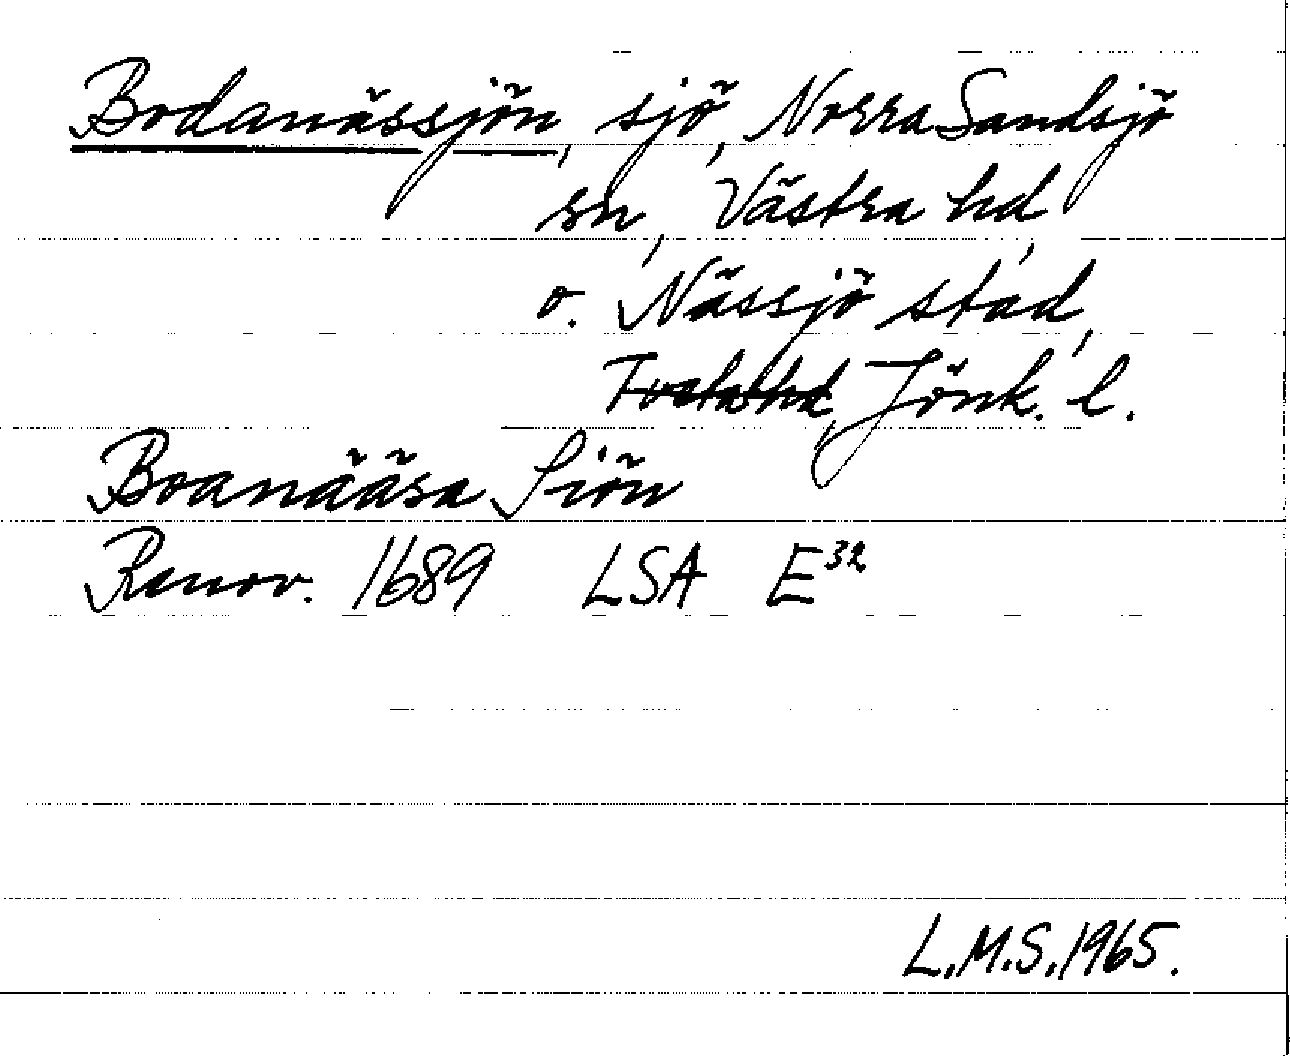 Bodanässjön, sjö, Norra Sandsjö
sn, Västra hd,
o. Nässjö stad,
Tveta hd, Jönk. l.
Boanääsa Siön
Renov. 1689 LSA E32
L.M.S. 1965.